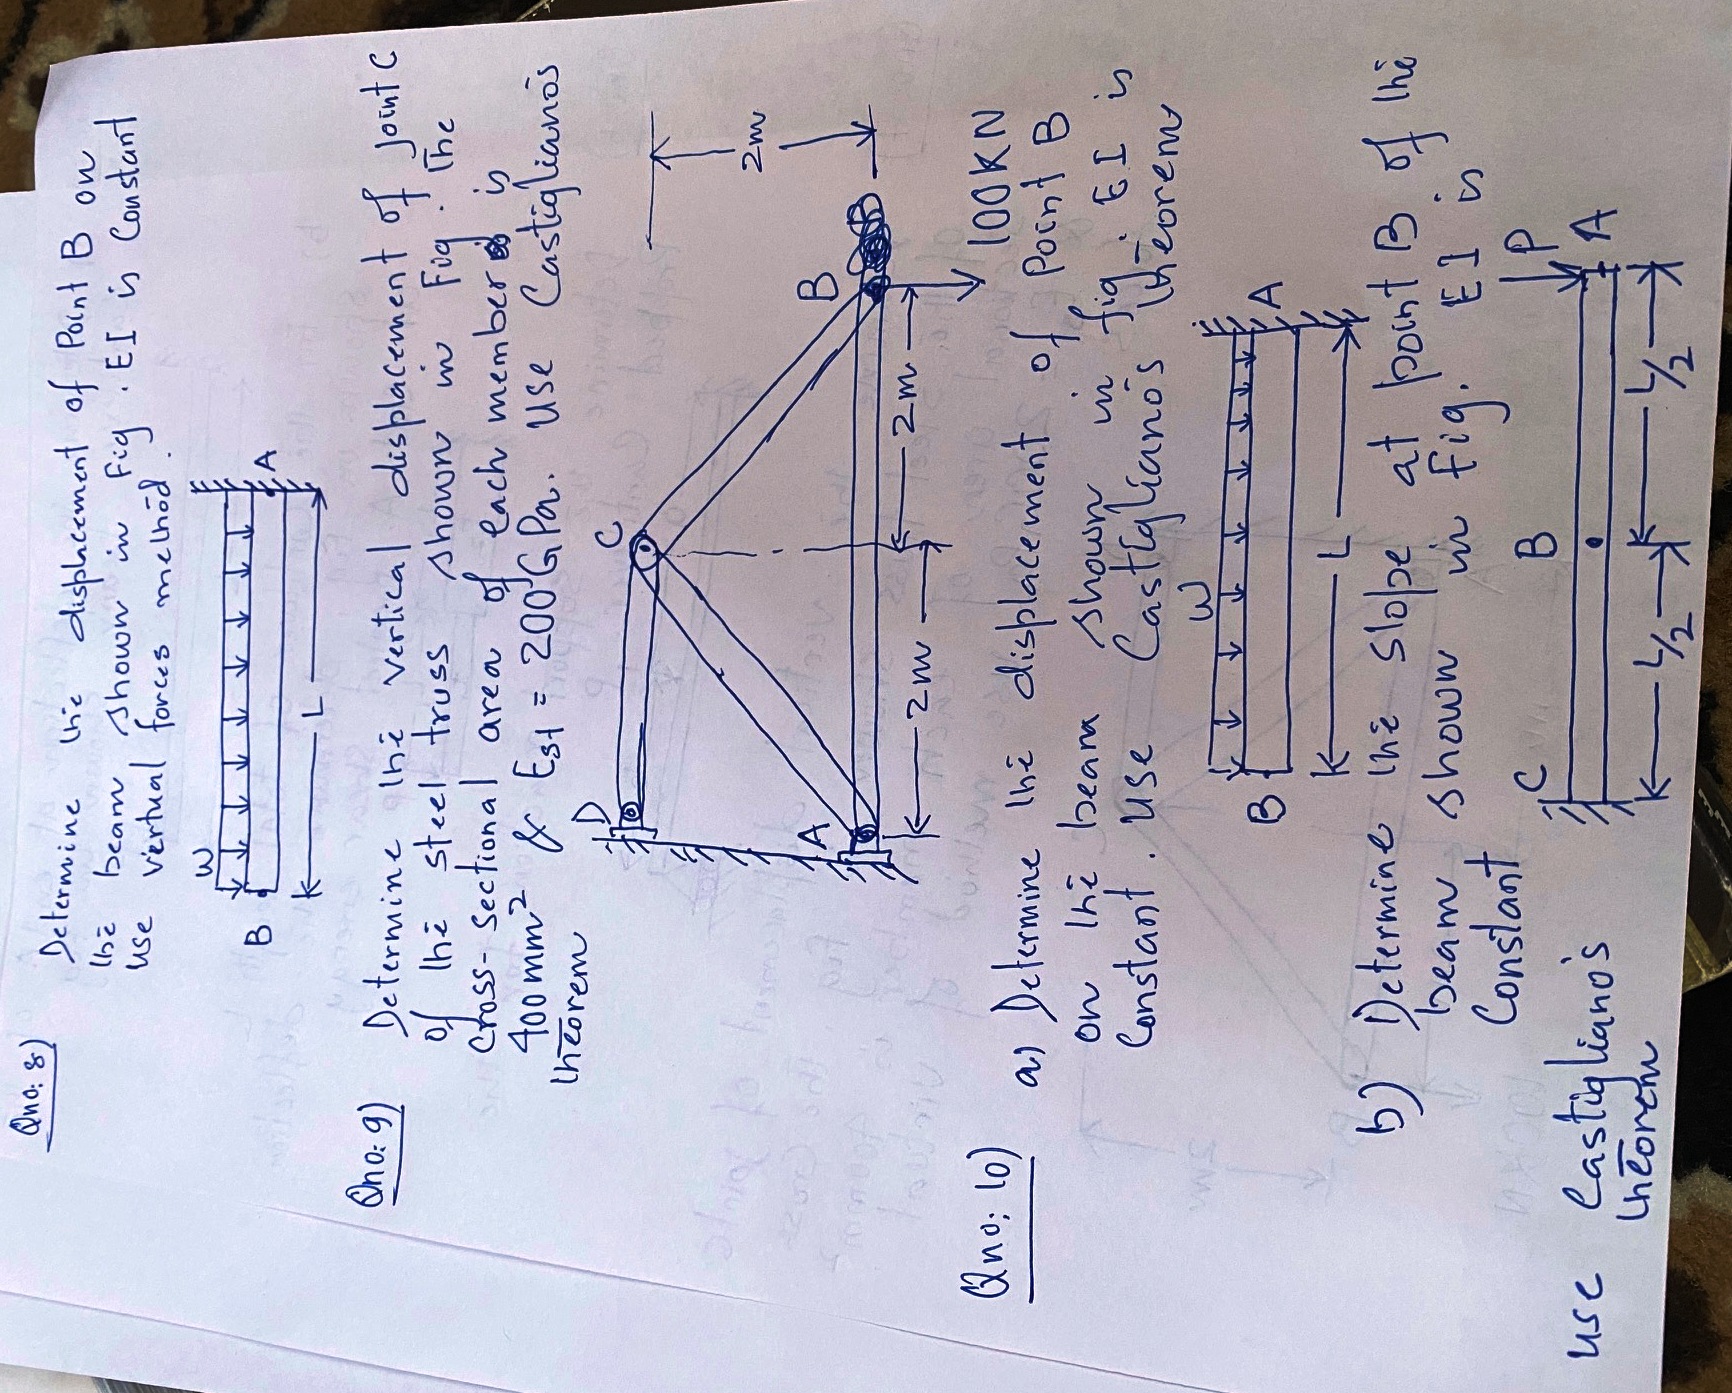 Qno: 8)
Determine the displacement of Point B on
the beam shown in Fig. EI is Constant
Use vertual forces method.
W
B
A
L
Qno: 9)
Determine the vertical displacement of joint C
of the steel truss shown in Fig. The
Cross-sectional area of each member is
400mm² & Est = 200GPa. Use Castigliano's
theorem
D
C
B
A
2m
2m
2m
100KN
Qno: 10)
a) Determine the displacement of Point B
on the beam shown in fig. EI is
Constant. Use Castigliano's theorem
W
B
A
L
b) Determine the slope at point B of the
beam shown in Fig. EI is
Constant
C
B
P
A
L/2
L/2
use Castigliano's
theorem